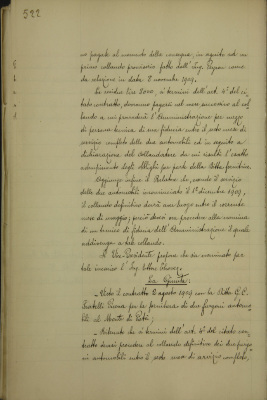 522
no pagate al momento della consegna, in seguito ad un
primo collaudo provvisorio fatto dall'Ing. come
da relazione in data 2 novembre 1909.
Le residue lire 2000, ai termini dell'art. 4° del ci-
tato contratto, dovranno pagarsi nel mese successivo al col-
laudo a cui procederà l'Amministrazione per mezzo
di persona tecnica di sua fiducia entro il sesto mese di
servizio completo delle due automobili ed in seguito a
dichiarazione del Collaudatore da cui risulti l'esatto
adempimento degli obblighi da parte della Ditta fornitrice.
Aggiunge infine il Relatore che, avendo il servizio
delle due automobili incominciato il 1° dicembre 1909,
il collaudo definitivo dovrà aver luogo entro il corrente
mese di maggio; perciò dovrà ora procedersi alla nomina
di un tecnico di fiducia dell'Amministrazione il quale
addivenga a tale collaudo.
Il Vice-Presidente, propone che sia nominato per
tale incarico l'Ing.
La Giunta:
- Visto il contratto 2 agosto 1909 con la Ditta
Fratelli per la fornitura di due furgoni automo-
bili al Monte di Pietà;
- Ritenuto che ai termini dell'art. 4° del citato con-
tratto dovrà procedersi al collaudo definitivo dei due furgo-
ni automobili entro il sesto mese di servizio completo,